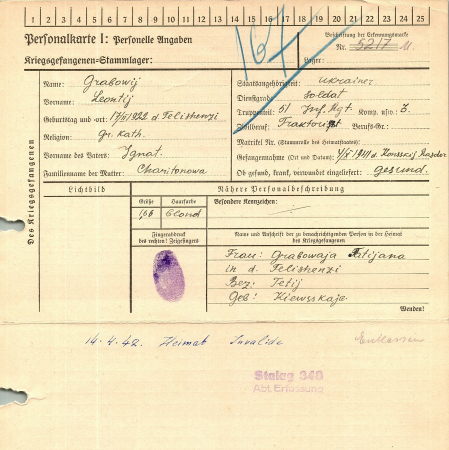 1 2 3 4 5 6 7 8 9 10 11 12 13 14 15 16 17 18 19 20 21 22 23 24 25
Personalkarte I: Personelle Angaben
167
Beschriftung der Erkennungsmarke
Nr. 5217
Kriegsgefangenen-Stammlager:
Lager:
Des Kriegsgefangenen
Name: Grabowij
Vorname: Leontij
Geburtstag und -ort: d. Telishenzi
Religion: Gr. Kath.
Vorname des Vaters: Ignat.
Familienname der Mutter: Charitonowa
Staatsangehörigkeit: Ukrainer
Dienstgrad: Soldat
Truppenteil: 51 Inf. Rgt. Komp. usw.: 3.
Zivilberuf: Berufs-Nr.:
Matrikel Nr. (Stammrolle des Heimatstaates):
Gefangennahme (Ort und Datum): 4/X 1941
Ob gesund, krank, verwundet eingeliefert: gesund.
Lichtbild
Nähere Personalbeschreibung
Größe
Haarfarbe
Besondere Kennzeichen:
1,66
blond
Fingerabdruck
des rechten! Zeigefingers
Name und Anschrift der zu benachrichtigenden Person in der Heimat
des Kriegsgefangenen
Frau: Grabowaja Tatijana
in d. Telishenzi
Bez: Tetij
Geb: Kiewsskaje
Wenden!
14.4.42. Heimat Invalide
Stalag 348
Abt. Erfassung